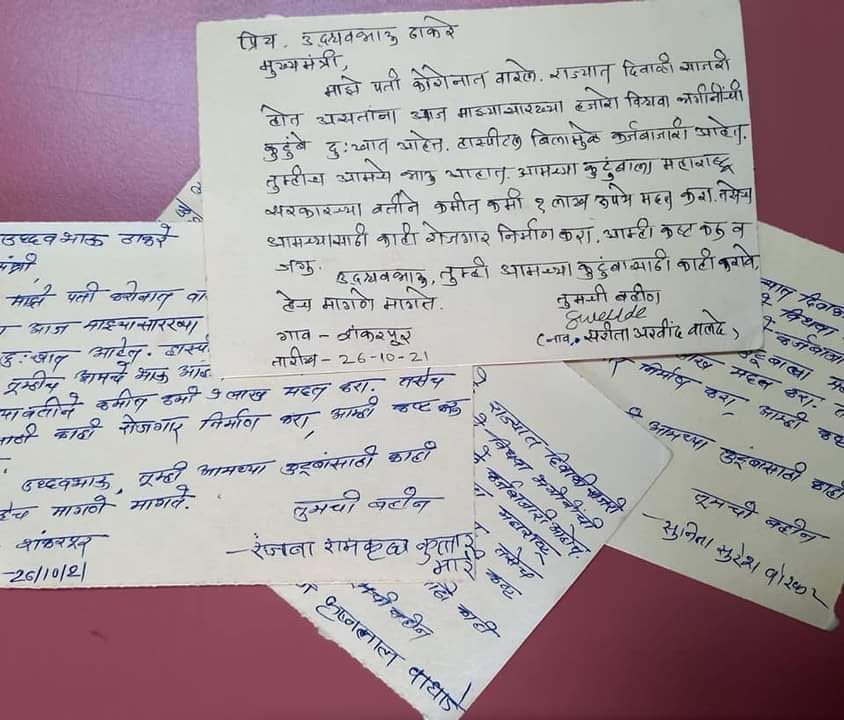 प्रिय. उद्धवभाऊ ठाकरे
मुख्यमंत्री,
माझे पती कोरोनात वारले. राज्यात दिवाळी साजरी
होत असतांना आज माझ्यासारख्या हजारो विधवा भगीनींची
कुटुंबे दु:खात आहेत. हास्पीटल बिलामुळे कर्जबाजारी आहेत.
तुम्हीच आमचे भाऊ आहात. आमच्या कुटुंबाला महाराष्ट्र
सरकारच्या वतीने कमीत कमी १ लाख रुपये मदत करा. तसेच
आमच्यासाठी काही रोजगार निर्माण करा. आम्ही कष्ट करू व
जगु. उद्धवभाऊ, तुम्ही आमच्या कुटुंबासाठी काही करावे.
हेच मागणे मागते. तुमची बहीण
गाव - शंकरपूर (नाव. सरीता अरवींद वालदे)
तारीख - 26-10-21
उध्दवभाऊ ठाकरे
मंत्री,
माझे पती करोनात वा
आज माझ्यासारख्या
दु:खात आहेत. हास्पी
तूम्हीच आमचे भाऊ आह
वतीने कमीत कमी १ लाख मदत करा. तसेच
साठी काही रोजगार निर्माण करा, आम्ही कष्ट करू
उध्दवभाऊ, तूम्ही आमच्या कुटूंबांसाठी काही
हेच मागणे मागते. तुमची बहीन
शंकरपूर - रंजना रामकृष्ण
-26/10/21
राज्यात दिवाळी साजरी
विधवा भगीनींची
कर्जबाजारी आहेत.
महाराष्ट्र
तसेच
कष्ट
काही
बहीन
वाघाडे
दिवा
विधवा
कर्जबाजा
मदत करा. त
निर्माण करा, आम्ही कष्ट
आमच्या कुटूंबांसाठी काही
तूमची बहीन
- सुनिता सुरेश